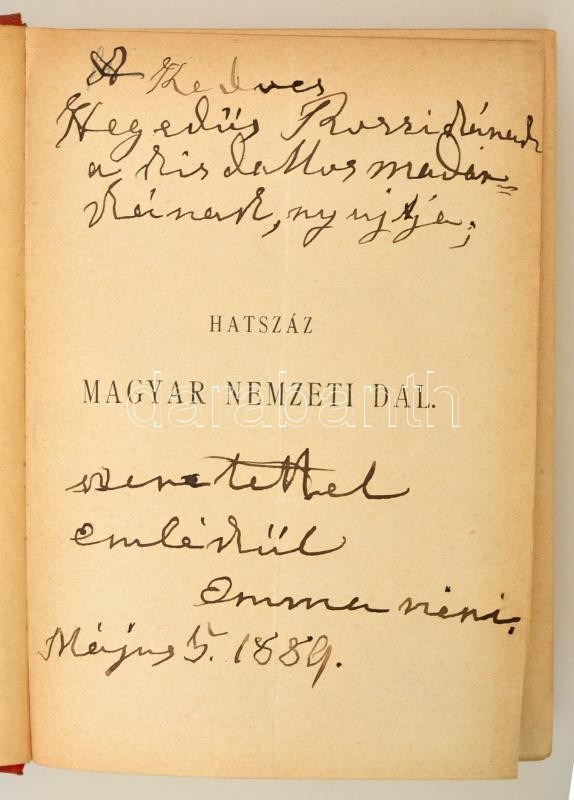 A Kedves
Hegedüs Rozsikának
a kis dallos madár=
kának, nyujtja;
HATSZÁZ
MAGYAR NEMZETI DAL.
darabanth
szeretettel
emlékül
Emma néni.
Május 5. 1889.